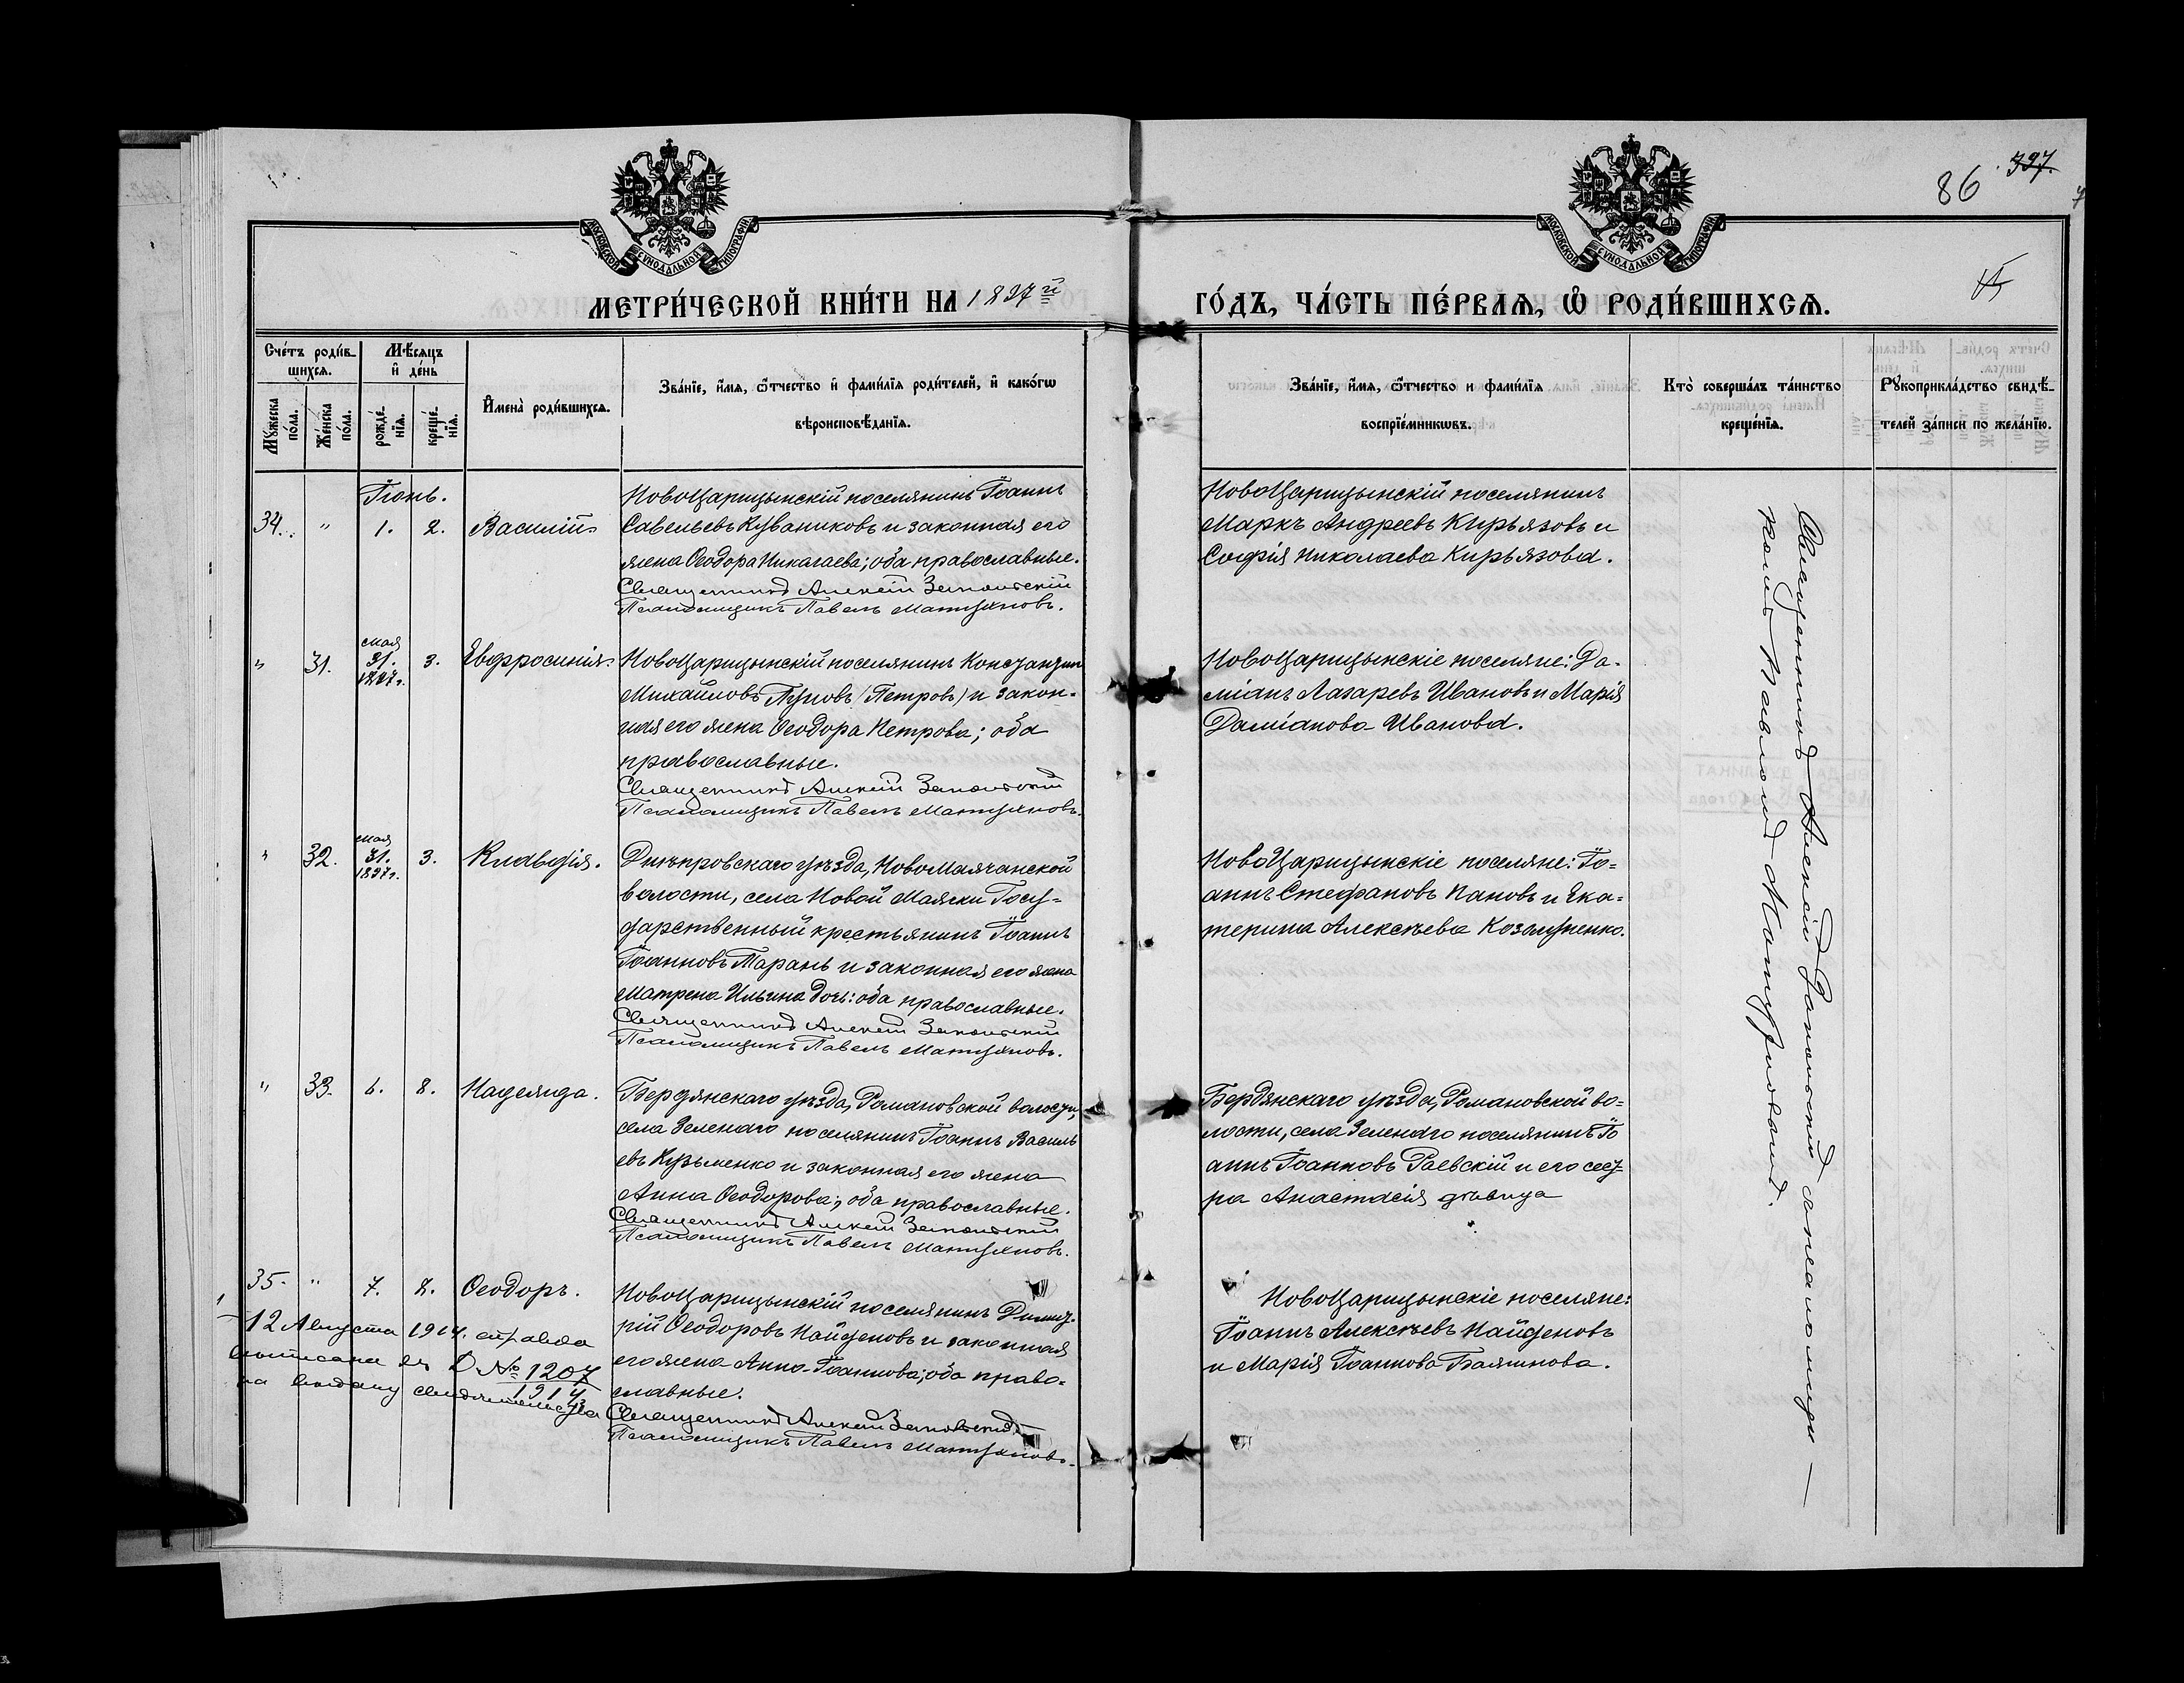 86
397.
МОСКОВСКОЙ СѴНОДАЛЬНОЙ ТИПОГРАФІИ
МОСКОВСКОЙ СѴНОДАЛЬНОЙ ТИПОГРАФІИ
МЕТРИ́ЧЕСКОЙ КНИ́ГИ НА 1897й
ГО́ДЪ, ЧА́СТЬ ПЕ́РВАѦ, Ѡ҆ РОДИ́ВШИХСѦ.
Сче́тъ роди́в-
шихсѧ.
Мꙋ́жеска по́ла.
Же́нска по́ла.
Мѣ́сѧцъ
и҆ де́нь
рожде́-
нїѧ.
креще́-
нїѧ.
И҆мена̀ роди́вшихсѧ.
Зва́нїе, и҆́мѧ, ѻ҆́тчество и҆ фами́лїѧ роди́телей, и҆ како́гѡ
вѣроисповѣ́данїѧ.
Зва́нїе, и҆́мѧ, ѻ҆́тчество и фами́лїѧ
воспрїе́мникѡвъ.
Кто̀ соверша́лъ та́инство
креще́нїѧ.
Рꙋкоприкла́дство свидѣ́-
телей за́писи по жела́нїю.
Іюнь.
34. " 1. 2. Василій
НовоЦарицынскій поселянинъ Іоаннъ
Савельевъ Куваниковъ и законная его
жена Ѳеодора Николаева; оба православные.
Священникъ Алексій
Псаломщикъ Павелъ
НовоЦарицынскій поселянинъ
Маркъ Андреевъ Кирьязовъ и
Софія Николаева Кирьязова.
" 31. мая 31. 1897г. 3. Евфросинія.
НовоЦарицынскій поселянинъ Константинъ
Михайловъ (Петровъ) и закон-
ная его жена Ѳеодора Петрова; оба
православные.
Священникъ Алексій
Псаломщикъ Павелъ
НовоЦарицынскіе поселяне: Да-
міанъ Лазаревъ Ивановъ и Марія
Даміанова Иванова.
" 32. мая 31. 1897г. 3. Клавдія.
Днѣпровскаго уѣзда, НовоМаячанской
волости, села Новой Маячки Госу-
дарственный крестьянинъ Іоаннъ
Іоанновъ Тарань и законная его жена
Матрена Ильина дочь: оба православные.
Священникъ Алексій
Псаломщикъ Павелъ
НовоЦарицынскіе поселяне: Іо-
аннъ Стефановъ Пановъ и Ека-
терина Алексѣева Козолупенко.
" 33. 6. 8. Надежда.
Бердянскаго уѣзда, Романовской волости,
села Зеленаго поселянинъ Іоаннъ Василь
евъ Кузьменко и законная его жена
Анна Ѳеодорова; оба православные.
Священникъ Алексій
Псаломщикъ Павелъ
Бердянскаго уѣзда, Романовской во-
лости, села Зеленаго поселянинъ Іо
аннъ Іоанновъ Раевскій и его сест-
ра Анастасія дѣвица
35. " 7. 8. Ѳеодоръ.
НовоЦарицынскій поселянинъ Димит-
рій Ѳеодоровъ Найденовъ и законная
его жена Анна Іоаннова; оба право-
славные.
Священникъ Алексій
Псаломщикъ Павелъ
НовоЦарицынскіе поселяне:
Іоаннъ Алексѣевъ Найденовъ
и Марія Іоаннова
12 Августа 1914. справка
№ 1207
1914
на выдачу свидѣтельства
Священникъ Алексій съ псаломщи-
комъ Павломъ